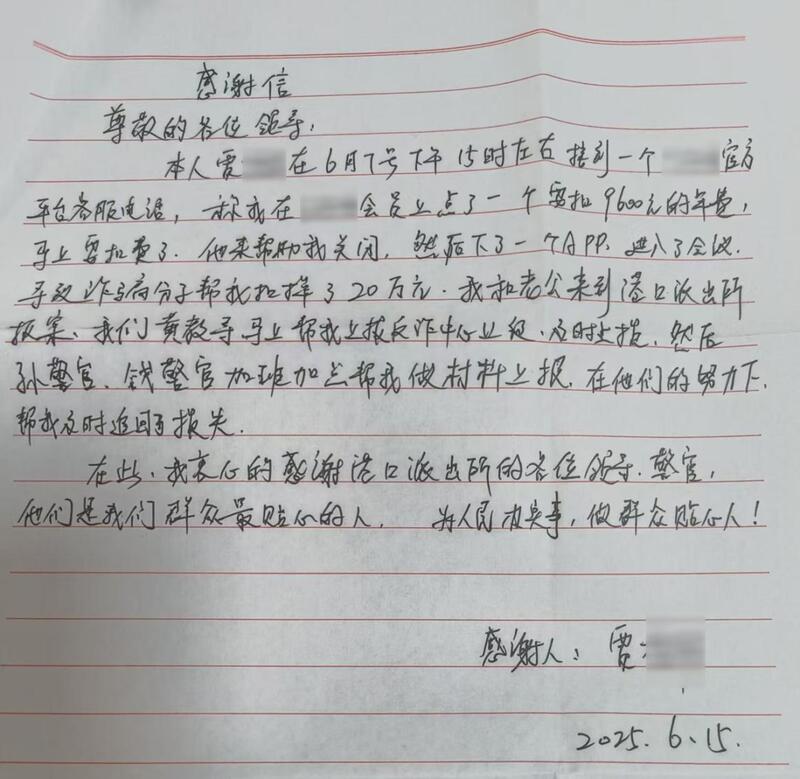 感谢信
尊敬的各位领导，
本人贾 在6月7号下午15时左右接到一个 官方
平台客服电话，称我在 会员上点了一个要扣9600元的年费，
马上要扣费了．他来帮助我关闭，然后下了一个APP，进入了会议．
导致诈骗分子帮我扣掉了20万元．我和老公来到港口派出所
报案、我们黄教导马上帮我上报反诈中心止付、及时上报．然后
孙警官、钱警官加班加点帮我做材料上报．在他们的努力下．
帮我及时追回了损失．
在此、我衷心的感谢港口派出所的各位领导、警官，
他们是我们群众最贴心的人． 为人民办实事，做群众贴心人！
感谢人：贾
2025．6．15．